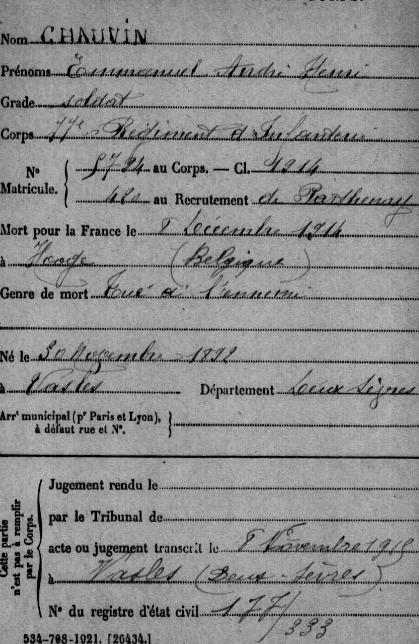 Nom CHAUVIN
Prénoms Emmanuel André Henri
Grade soldat
Corps 77e Régiment d'Infanterie
N° Matricule. { 5794 au Corps. — Cl. 1914
480 au Recrutement de Parthenay
Mort pour la France le 8 Décembre 1914
à Hooge (Belgique)
Genre de mort Tué à l'ennemi
Né le 30 Novembre 1892
à Vasles Département Deux Sèvres
Arrt municipal (pr Paris et Lyon), à défaut rue et N°. }
Cette partie n'est pas à remplir par le Corps.
Jugement rendu le
par le Tribunal de
acte ou jugement transcrit le 8 Novembre 1915
à Vasles (Deux-Sèvres)
N° du registre d'état civil 177/
333
534-708-1921. [26434.]